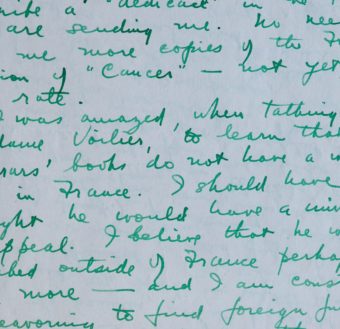 a "dedicace" in the
are sending me. No need
me more copies of the Fr
ion of "Cancer" — not yet
rate.
I was amazed, when talking
dame Voilier, to learn that
rars' books do not have a w
in France. I should have
ght he would have a univ
appeal. I believe that he w
bed outside of France perhap
more — and I am cons
eavoring to find foreign